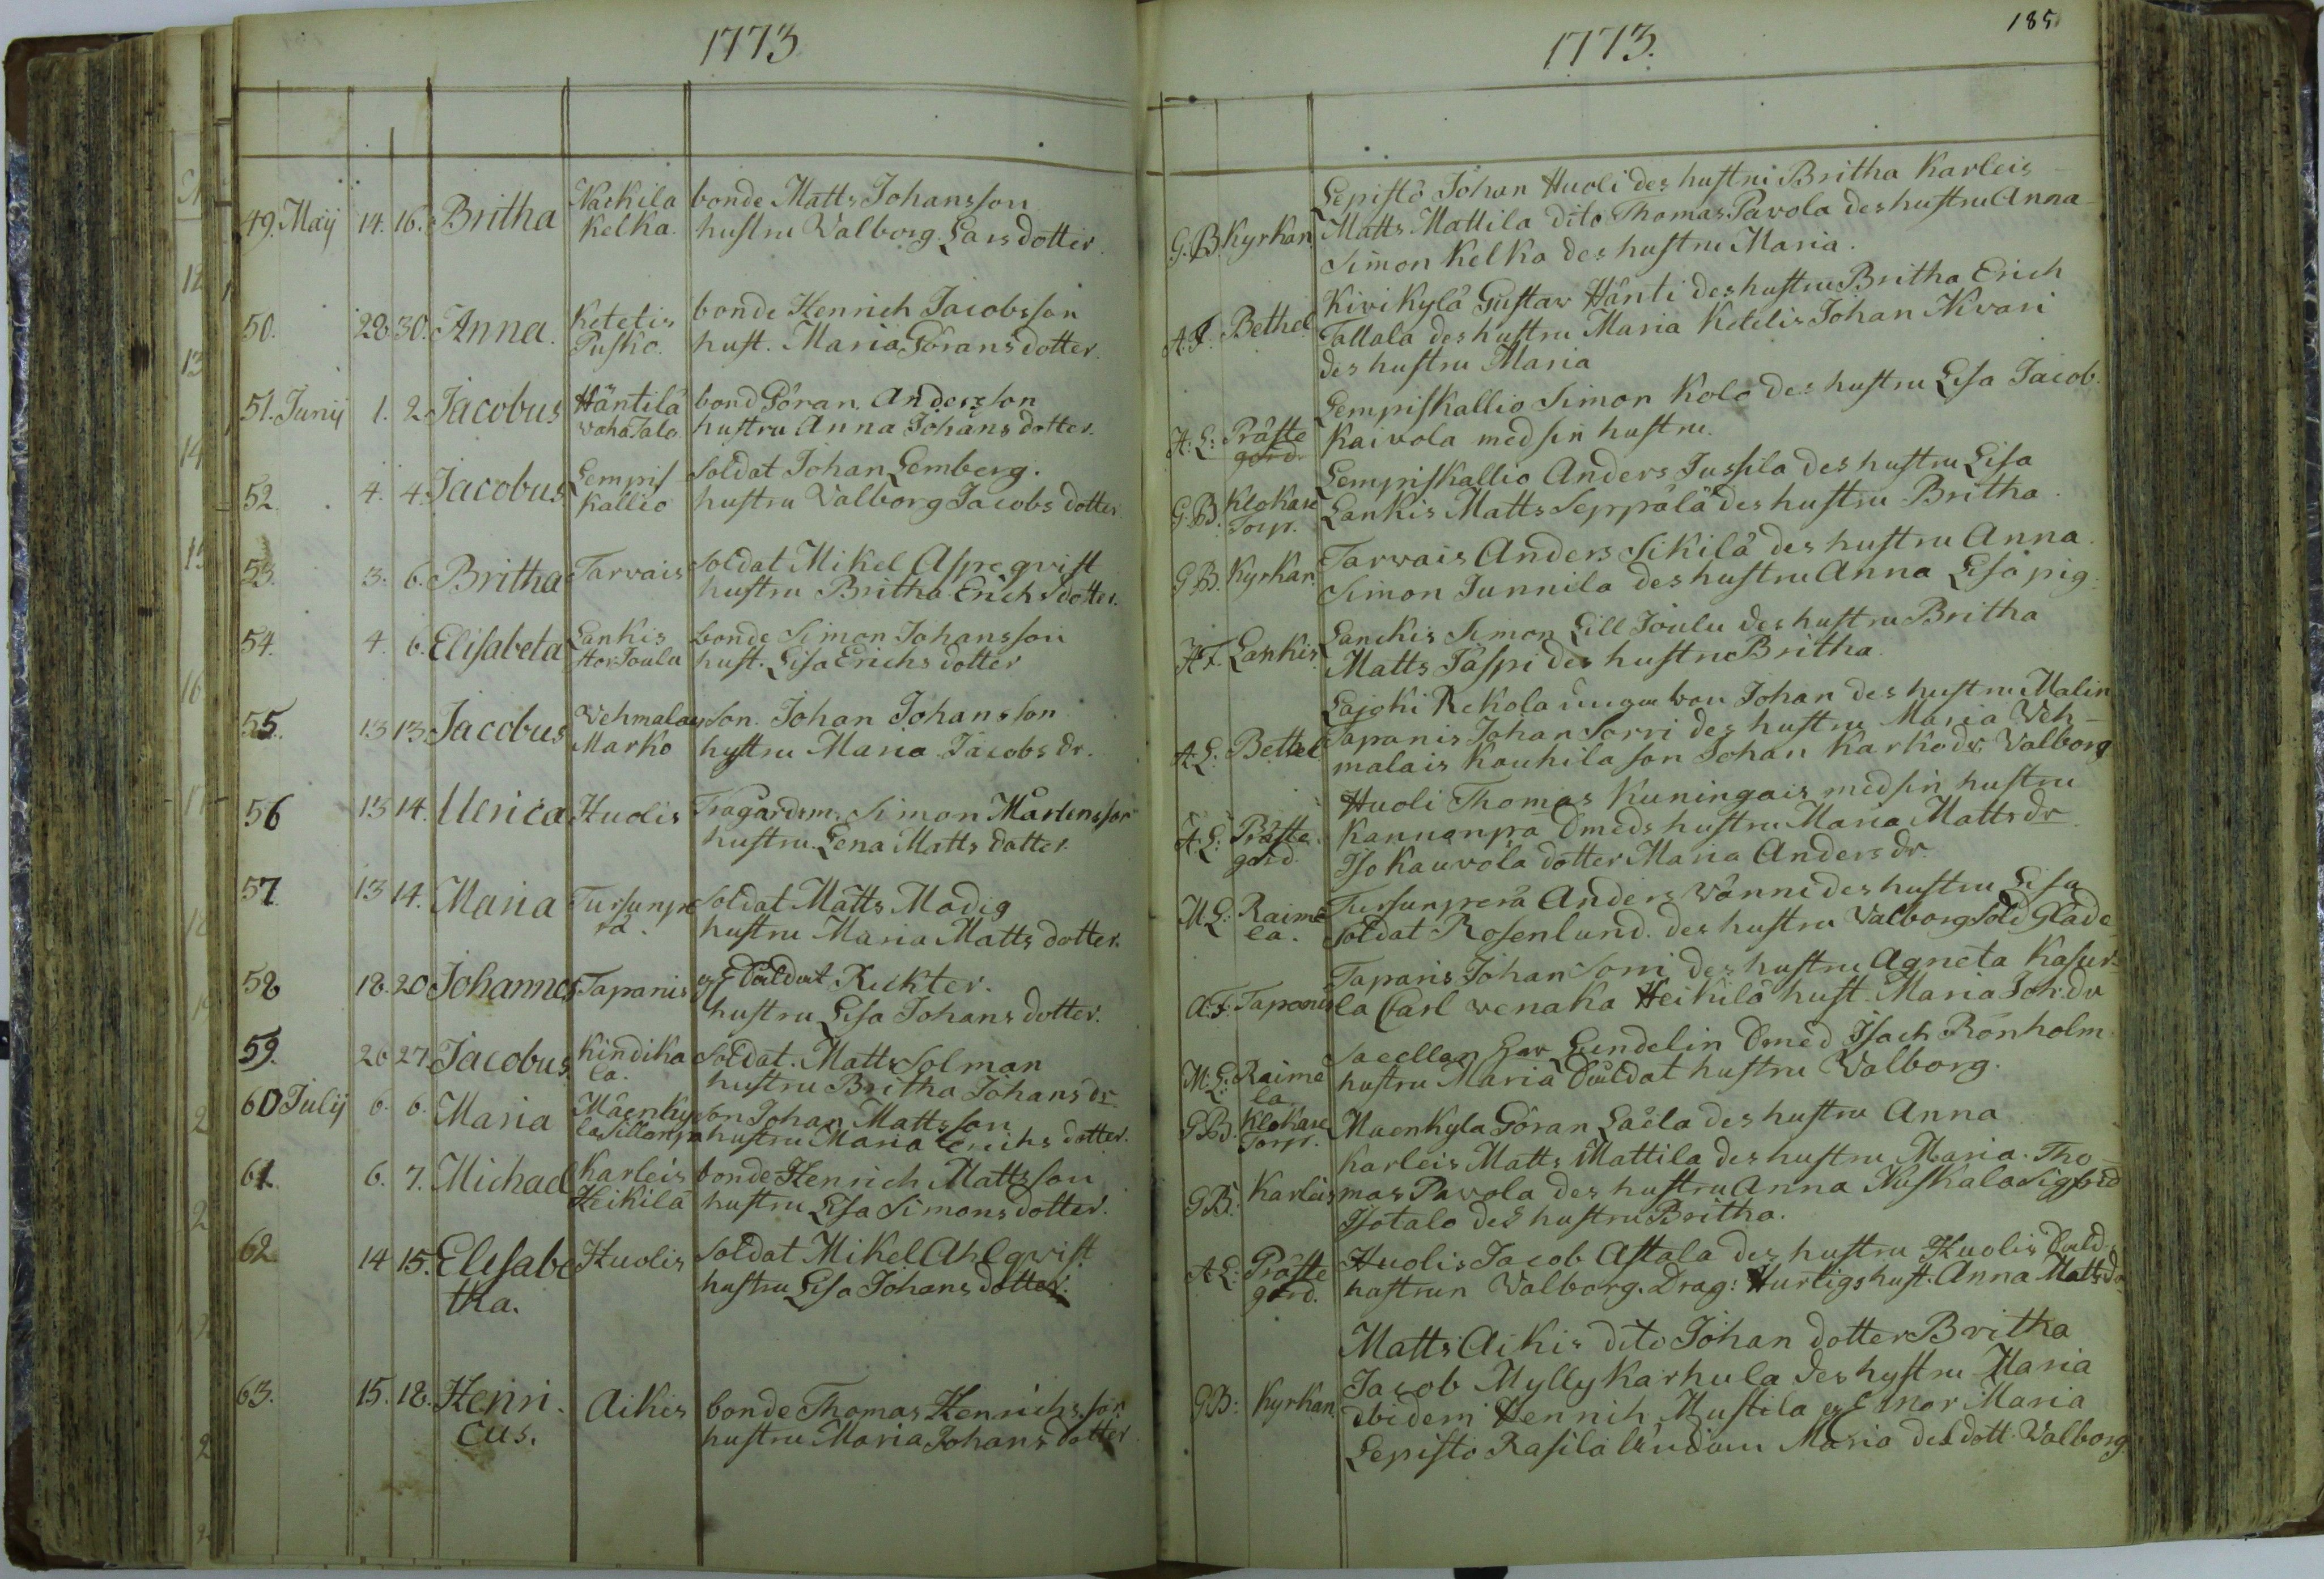 1773
49. Maÿ 14. 16. Britha Nackila bonde Matts Johansson
Kelka. hustru Valborg Larsdotter
50. 28 30. Anna. Ketelis bonde Henrich Jacobsson
Pusko. hust. Maria Görans dotter.
51. Junÿ 1. 2. Jacobus Häntilä bond Göran Andersson
wahatalo hustru Anna Johans dotter.
52. 4. 4. Jacobus Lempis soldat Johan Lemberg.
kallio hustru Valborg Jacobs dotter
53. 3. 6. Britha Tarvais soldat Mikel Aspegvist
hustru Britha Erichs dotter.
54. 4. 6. Elisabeta Lankis bonde Simon Johansson
Stor Joulu hust. Lisa Erichs dotter
55. 13 13. Jacobus Vehmalay son. Johan Johansson
Marko hustru Maria Jacobs dr.
56 13 14. Ulrica Huolis Tragårdsm. Simon Mårtensson
hustru. Lena Matts dotter.
57. 13 14. Maria Tursunpe soldat Matts Modig
rä. hustru Maria Matts dotter.
58 18. 20 Johannes Tapanis Ruckter.
hustru Lisa Johans dotter.
59. 26 27. Jacobus Kindika soldat. Matts Solman
la. hustru Britha Johans dr.
60 Julÿ 6. 6. Maria Mäenky son Johan Mattsson
la Sillanpä hustru Maria Erichs dotter.
61. 6. 7. Michael Karleis bonde Henrich Mattsson
Heikilä hustru Lisa Simons dotter.
62 14 15. Elisabe Huolis soldat Mikel Ahlqvist
tha. hustru Lisa Johans dotter.
63. 15. 18. Henri Aikis bonde Thomas Henrichsson
cus. hustru Maria Johans dotter
1773.
185
Lepistö Johan Huoli des hustru Britha Karleis
G.B. Kyrkan. Matts Mattila dito Thomas Pavola des hustru Anna
Simon Kelka des hustru Maria.
Kivikylä Gustav Hänti des hustru Britha Erich
A.F. Bethel. Tallala des hustru Maria Ketelis Johan Nivari
des hustru Maria
Lempiskallio Simon Kolo des hustru Lisa Jacob
A.L: Präste Kaivola med sin hustru.
gård.
Lempiskallio Anders Jussila des hustru Lisa
G.B. Klokare Lankis Matts Seppälä des hustru Britha.
Torp.
Tarvais Anders Sikilä des hustru Anna.
G.B. Kyrkan. Simon Junnila des hustru Anna Lisa pig.
Lanckis Simon Lill Joulu des hustru Britha
A.F. Lankis. Matts Taspi des hustru Britha.
Lajoki Rekola Johan des hustru Malin
A.L: Bettel. Tapanis Johan Sorri des hustru Maria Veh-
malais Kauhila son Johan Karko dr. Valborg
Huoli Thomas Kuningais med sin hustru
A.L: Präste Kannanpä hustru Maria Matts dr
gård. Iso Kauvola dotter Maria Anders dr.
Tursunperä Anders Vänni des hustru Lisa
M.L: Raime soldat Rosenlund. des hustru Valborg Sold Glade
la.
Tapanis Johan Sorri des hustru Agneta Kasur-
A.F. Tapanis la Carl venaka Heikilä hust. Maria Joh. dr
Lindelin Isach Rönholm
M.L: Raime hustru Maria hustru Valborg.
la.
G.B. Klokare Maenkyla Göran Laila des hustru Anna
Torp.
Karleis Matts Mattila des hustru Maria. Tho-
G.B. Karleis mas Pavola des hustru Anna Nuskala Sigfred
Isotalo des hustru Britha.
A.L: Präste Huolis Jacob Astala des hustru Huolis
gård. hustrun Valborg. Drag: Hurtigs hust. Anna Matts do
Matts Aikis dito Johan dotter Britha
Jacob Mylly Karhula des hustru Maria
G.B: Kyrkan. Henrich Mustila Maria
Lepistö Rasila Maria des dott Valborg